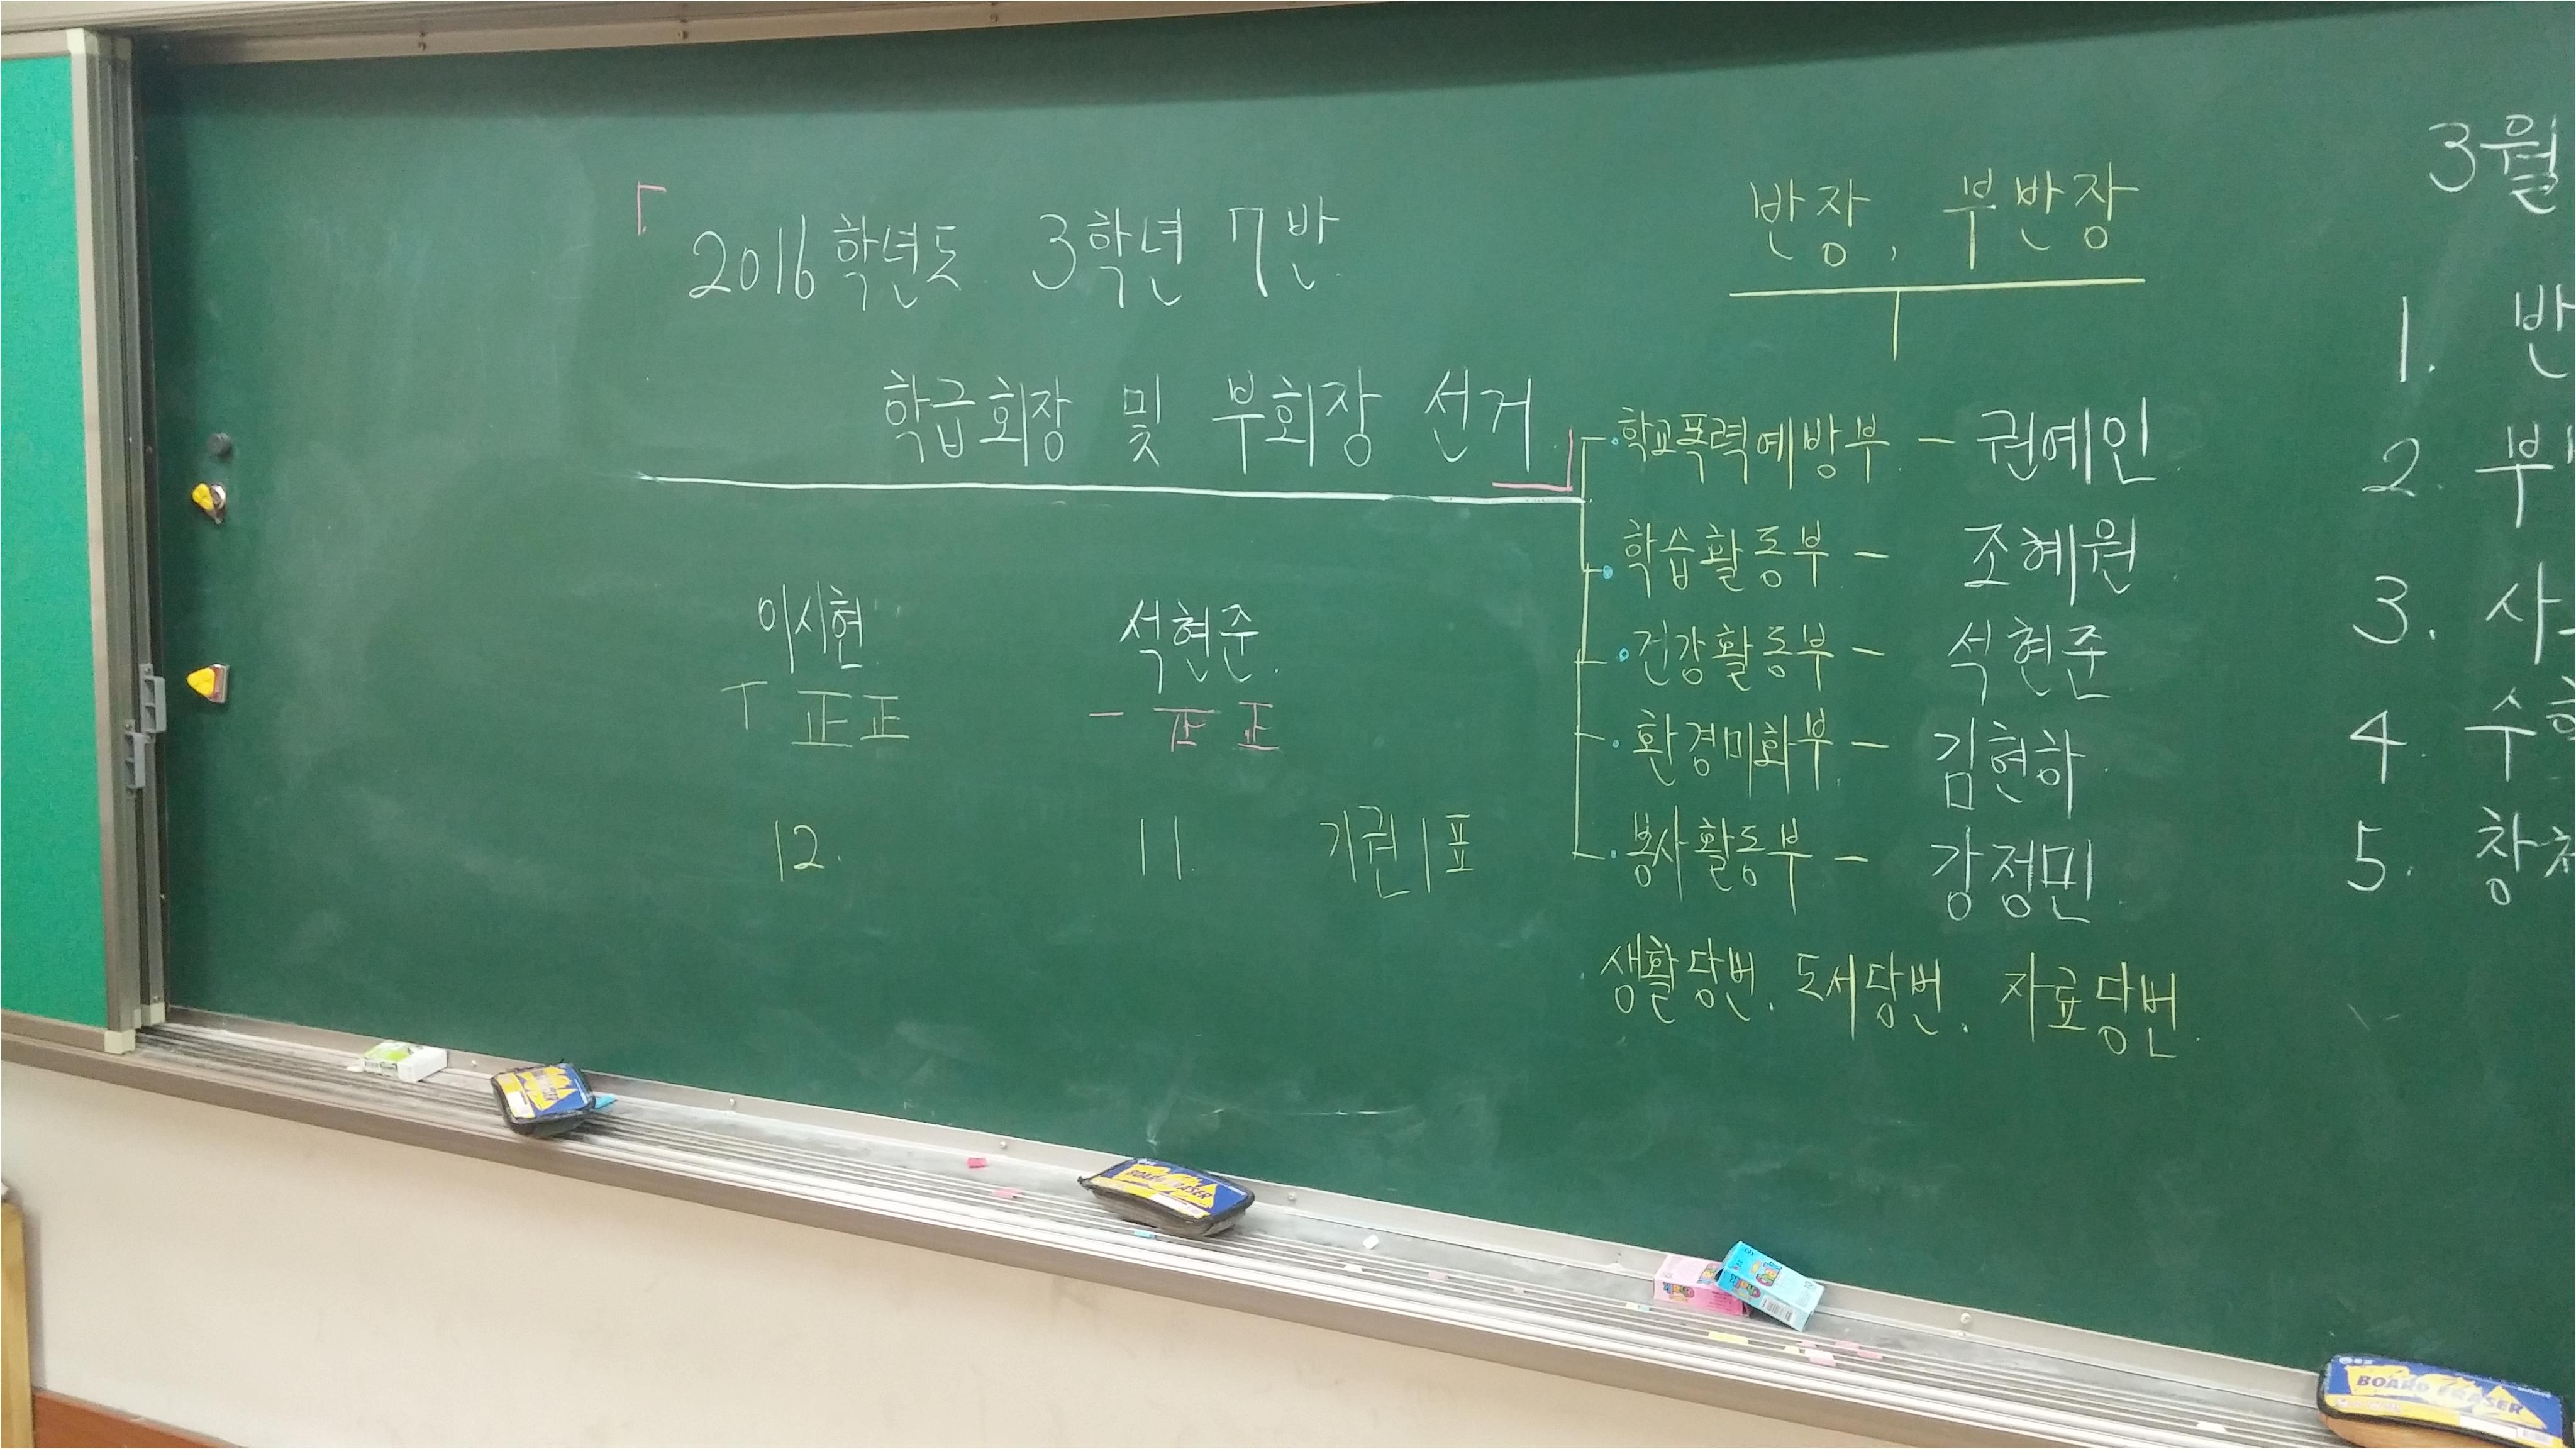 「2016학년도 3학년 7반
학급회장 및 부회장 선거」
이시현 석현준.
丅 正 正 一 正 正
12. 11. 기권 1표
반장, 부반장
·학교폭력예방부 - 권예인
·학습활동부 - 조혜원
·건강활동부 - 석현준
·환경미화부 - 김현하
·봉사활동부 - 강정민
생활당번. 도서당번. 자료당번.
3월
1. 반
2. 부
3. 사
4. 수
5. 창
BOARD ERASER
BOARD ERASER